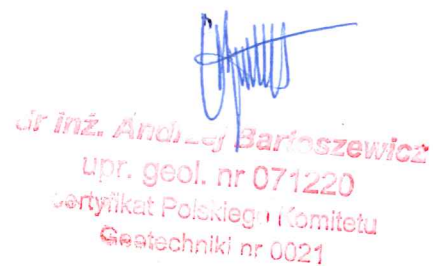 dr inż. Andrzej Bartoszewicz
upr. geol. nr 071220
Certyfikat Polskiego Komitetu
Geotechniki nr 0021